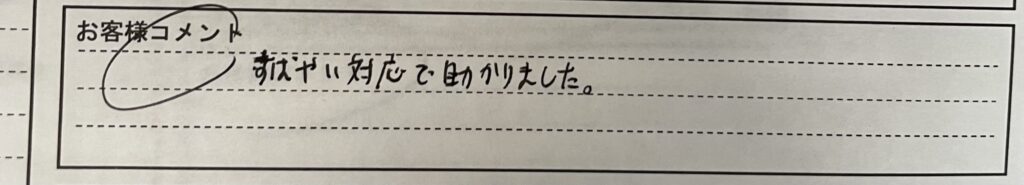 お客様コメント
すばやい対応で助かりました。